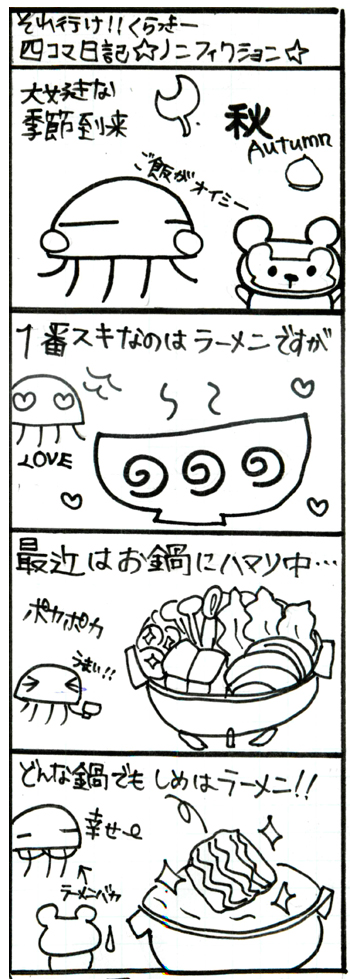 それ行け!!くらっきー
四コマ日記☆ノンフィクション☆
大好きな
季節到来
秋
Autumn
ご飯がオイシー
1番スキなのはラーメンですが
LOVE
最近はお鍋にハマり中…
ポカポカ
うまい!!
どんな鍋でもしめはラーメン!!
幸せ〜
ラーメンバカ